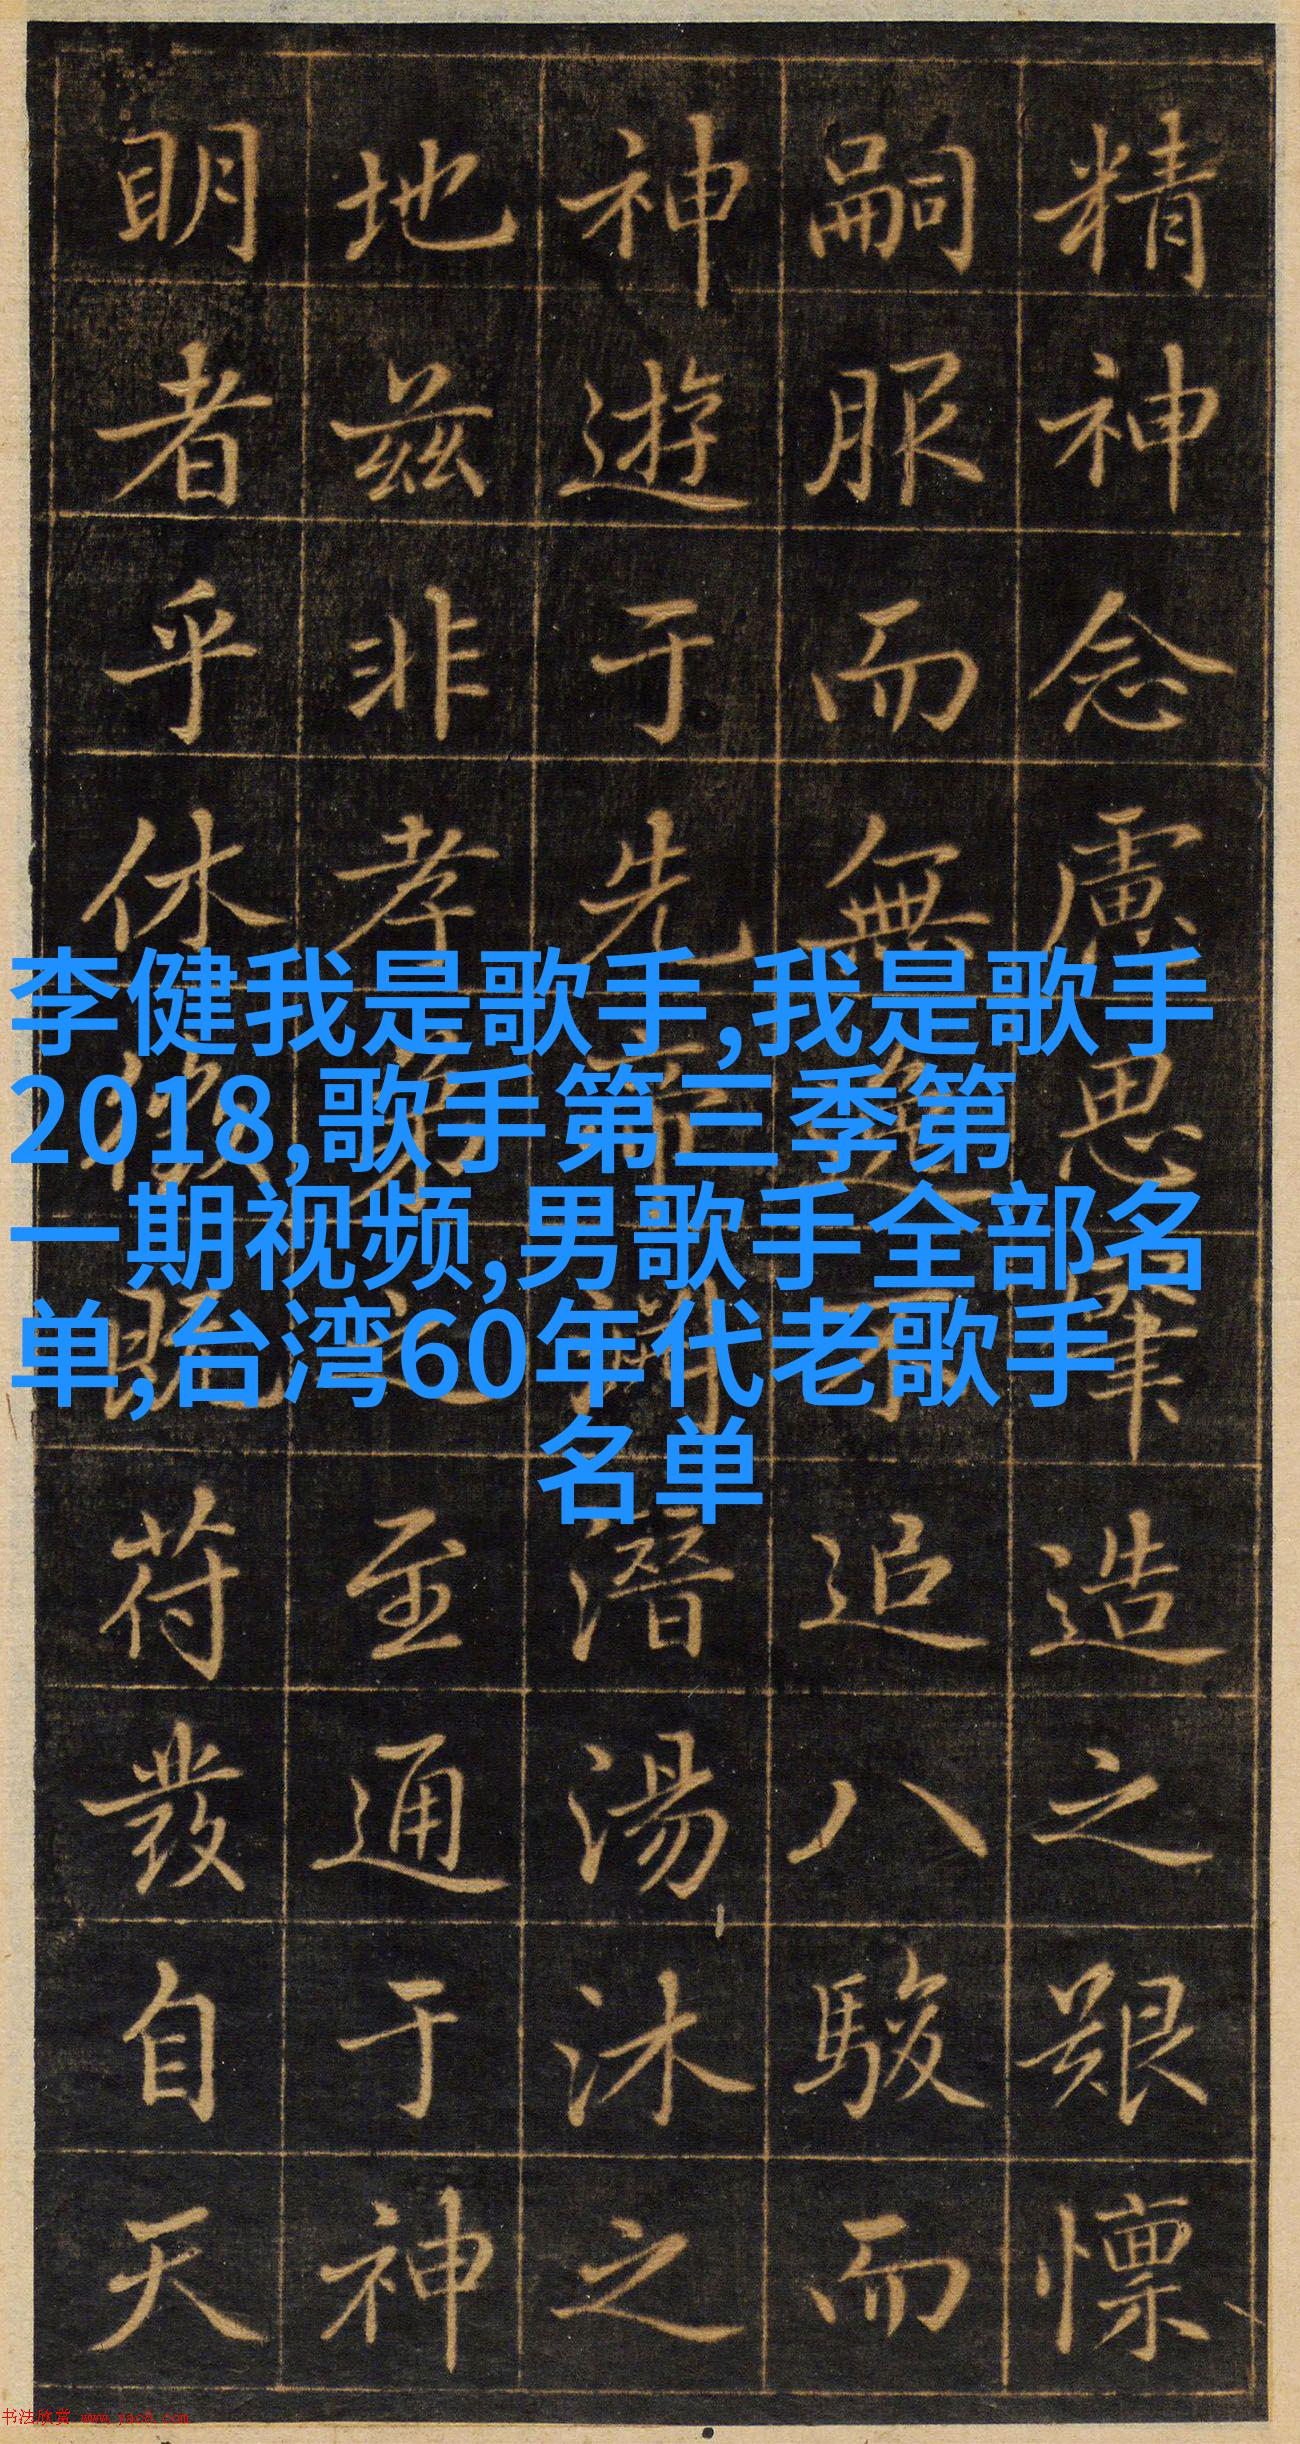 李健我是歌手,我是歌手
2018,歌手第三季第
一期视频,男歌手全部名
单,台湾60年代老歌手
名单
精神念慮思肇造之艱懍
嗣服而無追八駿而
神遊于先潛湯沐之
地茲非孝弟之至通于神
明者乎休徵既苻發自天
书法欣赏 www.yac8.com